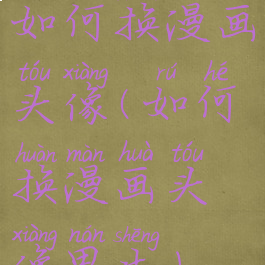 如何换漫画
tóu xiàng rú hé
头像(如何
huàn màn huà tóu
换漫画头
xiàng nán shēng
像男生)